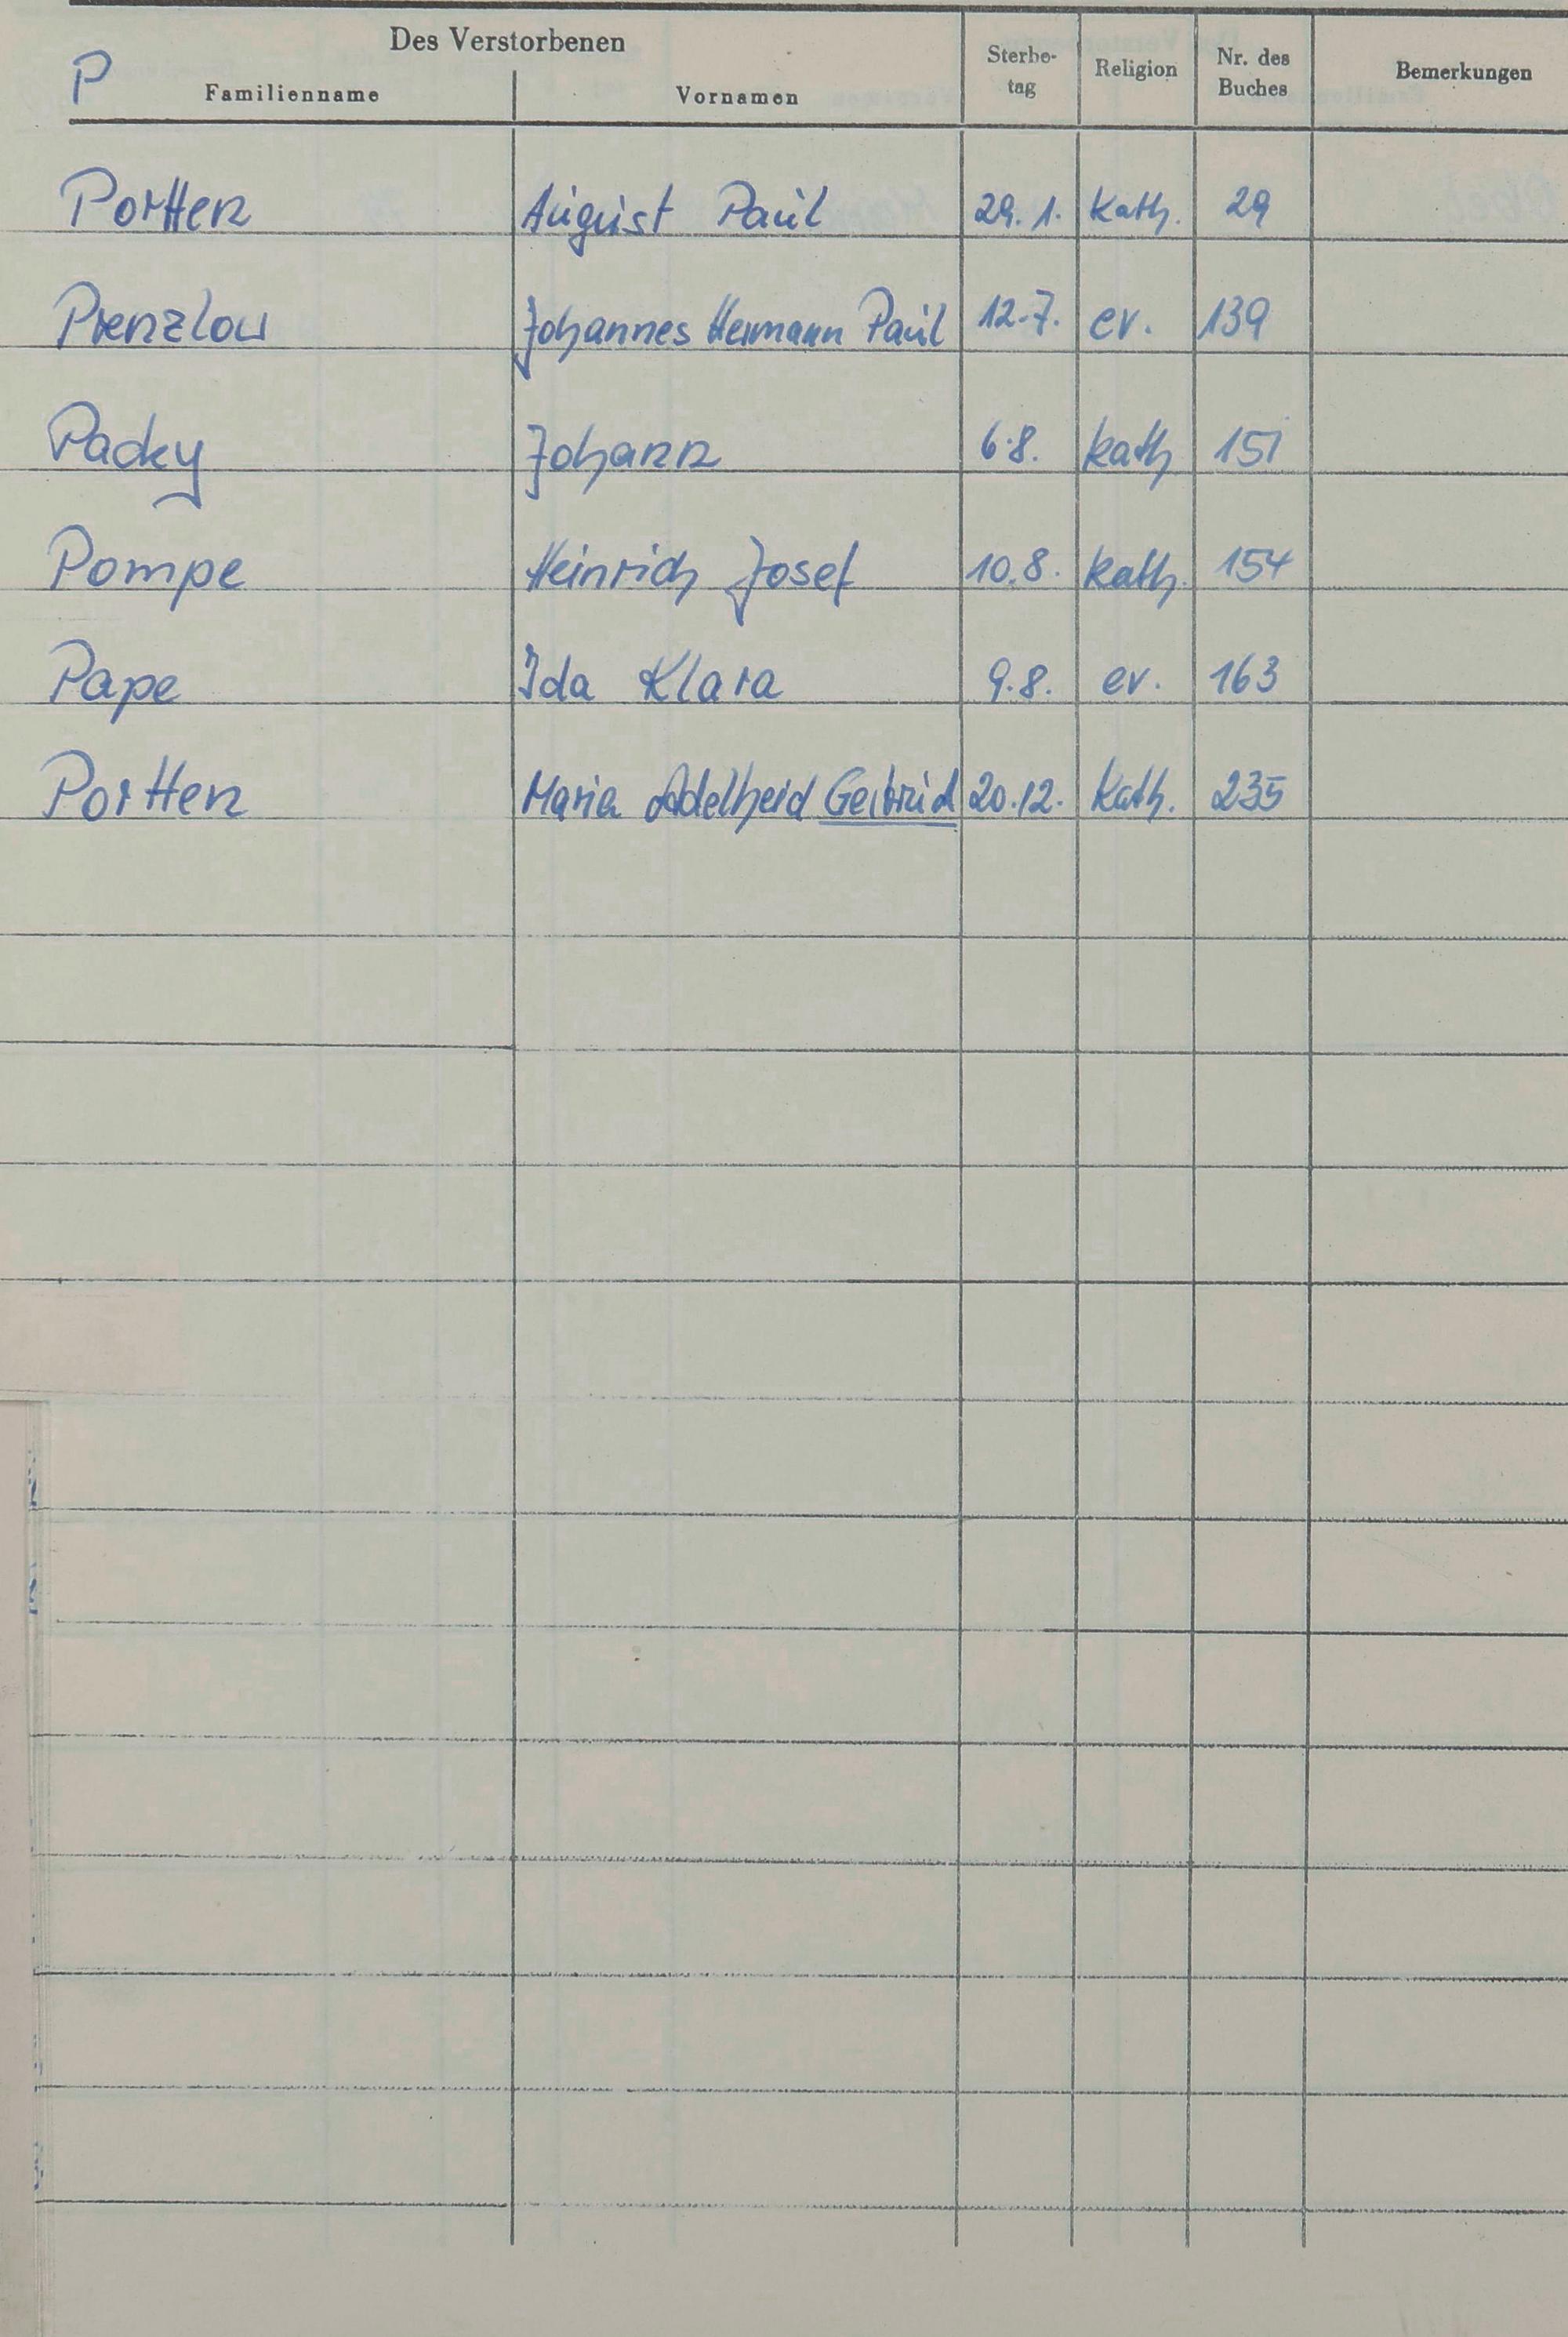 Des Verstorbenen
P Familienname Vornamen Sterbe-tag Religion Nr. des Buches Bemerkungen
Porten August Paul 29.1. kath. 29
Prenzlow Johannes Hermann Paul 12.7. ev. 139
Packy Johann 6.8. kath 151
Pompe Heinrich Josef 10.8. kath. 154
Pape Ida Klara 9.8. ev. 163
Porten Maria Adelheid Gertrud 20.12. kath. 235